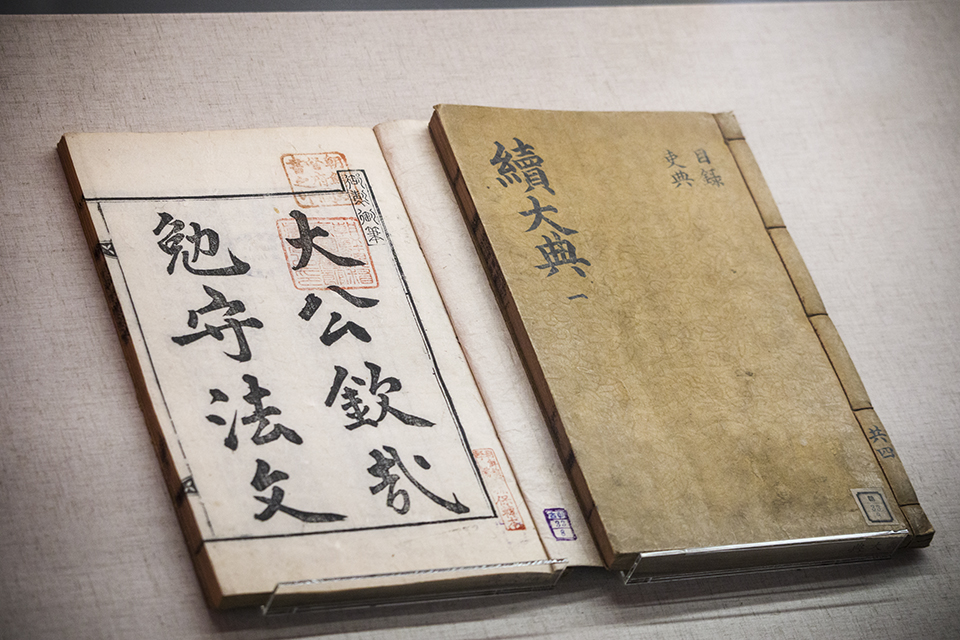 御製御筆
大公欽哉
勉守法文
續大典 一
目錄
吏典
共四